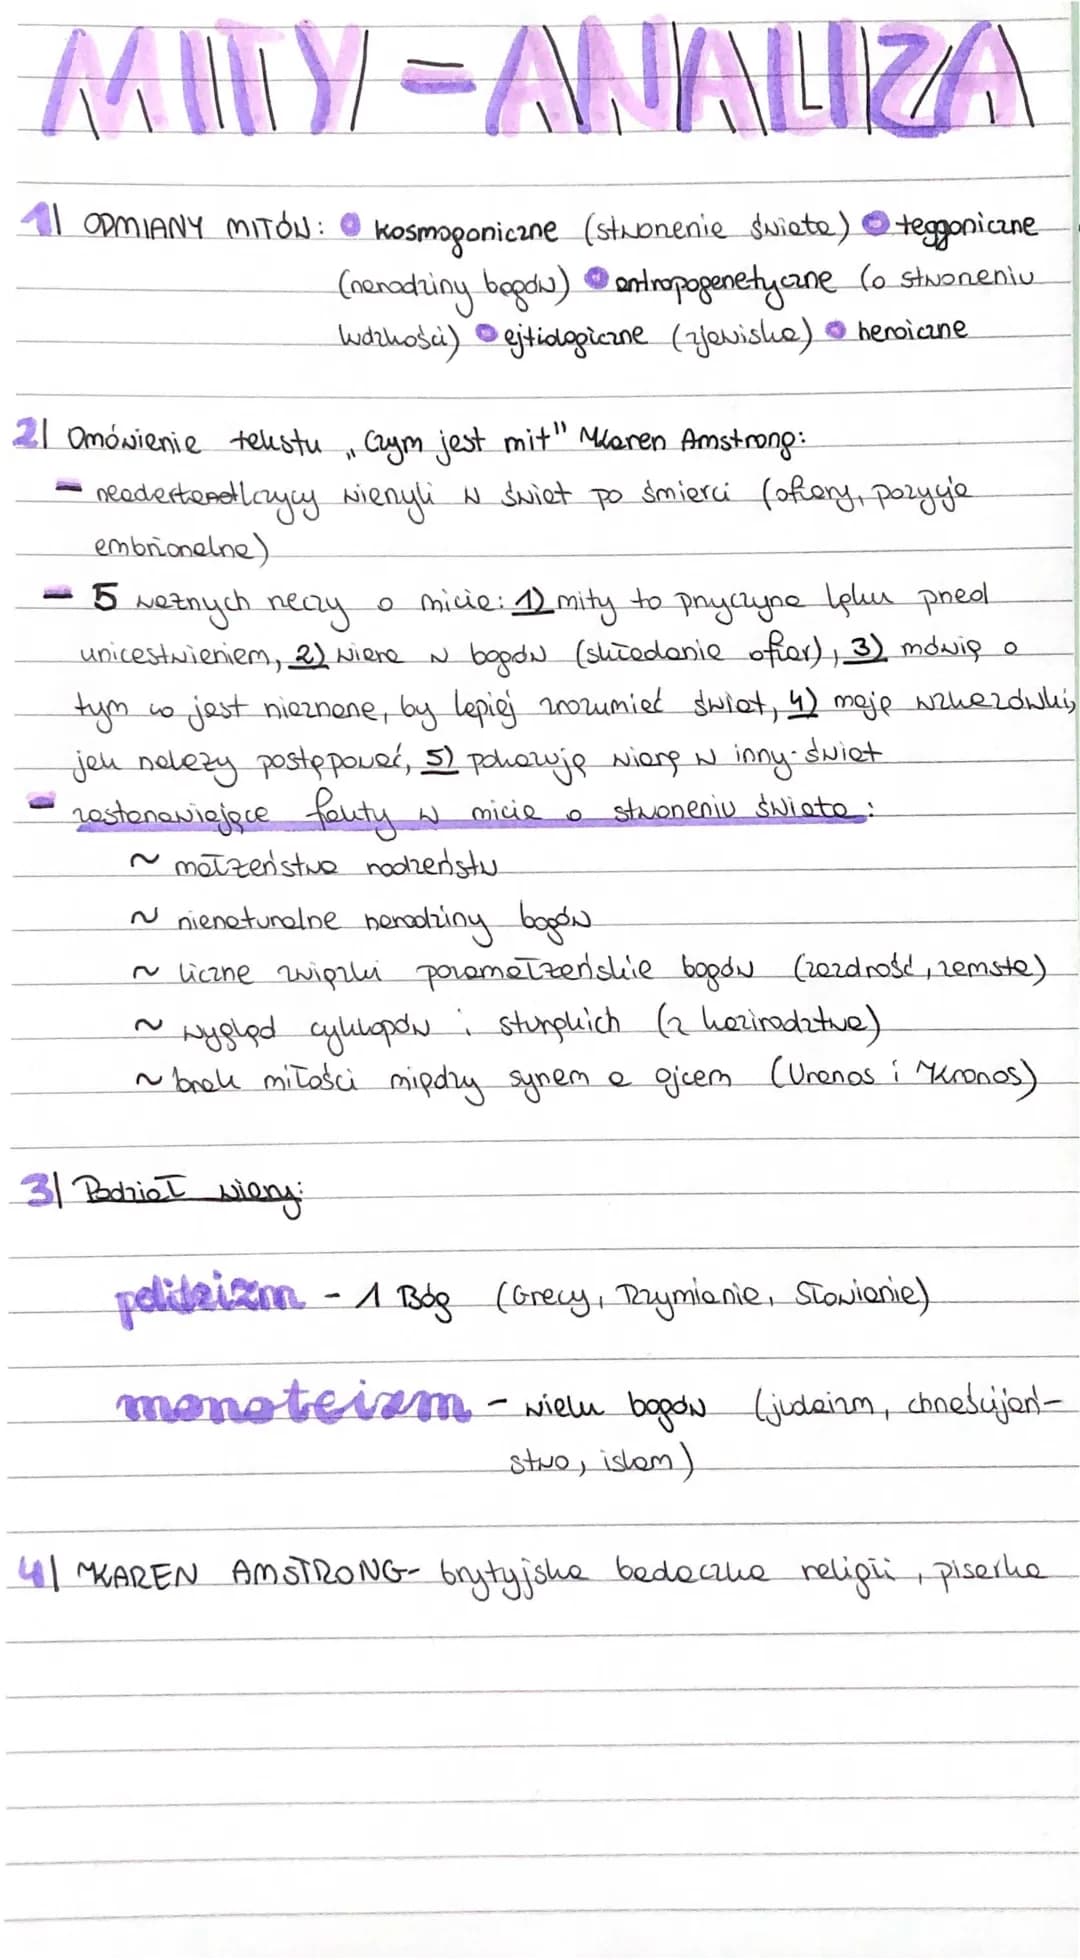 MITY - ANALIZA
1| ODMIANY MITÓW: kosmogoniczne (stworzenie świata) teggoniczne
(narodziny bogów) antropogenetyczne (o stworzeniu
ludzkości) ejtiologiczne (zjawiska) heroiczne
2| Omówienie tekstu „Czym jest mit" Karen Amstrong:
- neadertandlczycy wierzyli w świat po śmierci (ofiary, pozycja
embrionalna)
- 5 ważnych rzeczy o micie: 1) mity to przyczyna lęku przed
unicestwieniem, 2) wiara w bogów (składanie ofiar), 3) mówią o
tym co jest nieznane, by lepiej zrozumieć świat, 4) mają wskazówki,
jak należy postępować, 5) pokazują wiarę w inny świat
- zastanawiające fakty w micie o stworzeniu świata:
~ małżeństwa rodzeństw
~ nienaturalne narodziny bogów
~ liczne związki pozamałżeńskie bogów (zazdrość, zemsta)
~ wygląd cyklopów i sturękich (z kazirodztwa)
~ brak miłości między synem a ojcem (Uranos i Kronos)
3| Podział wiary:
politeizm - 1 Bóg (Grecy, Rzymianie, Słowianie)
monoteizm - wielu bogów (judaizm, chrześcijań-
stwo, islam)
4| KAREN AMSTRONG - brytyjska badaczka religii, pisarka